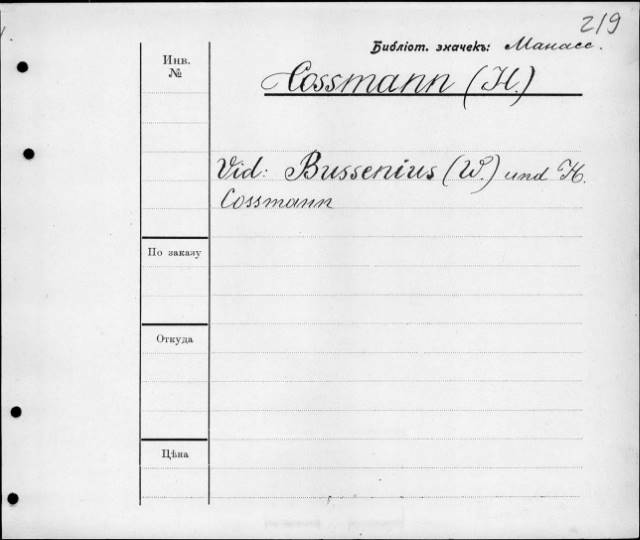 219
Библіот. значекъ: Манасс.
Инв.
№
Cossmann (H.)
Vid: Bussenius (W.) und H.
Cossmann
По заказу
Откуда
Цѣна